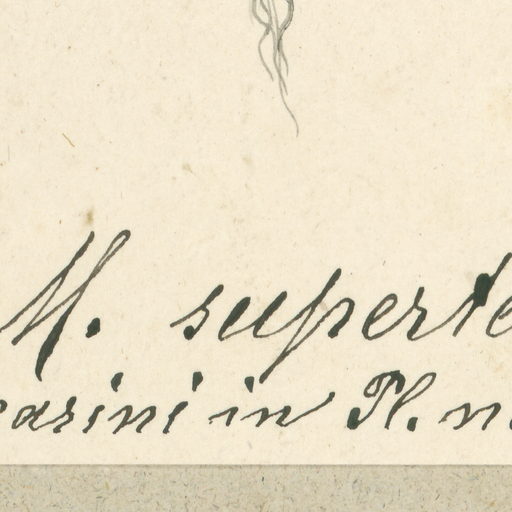 M. superte
arini in Pl. n.